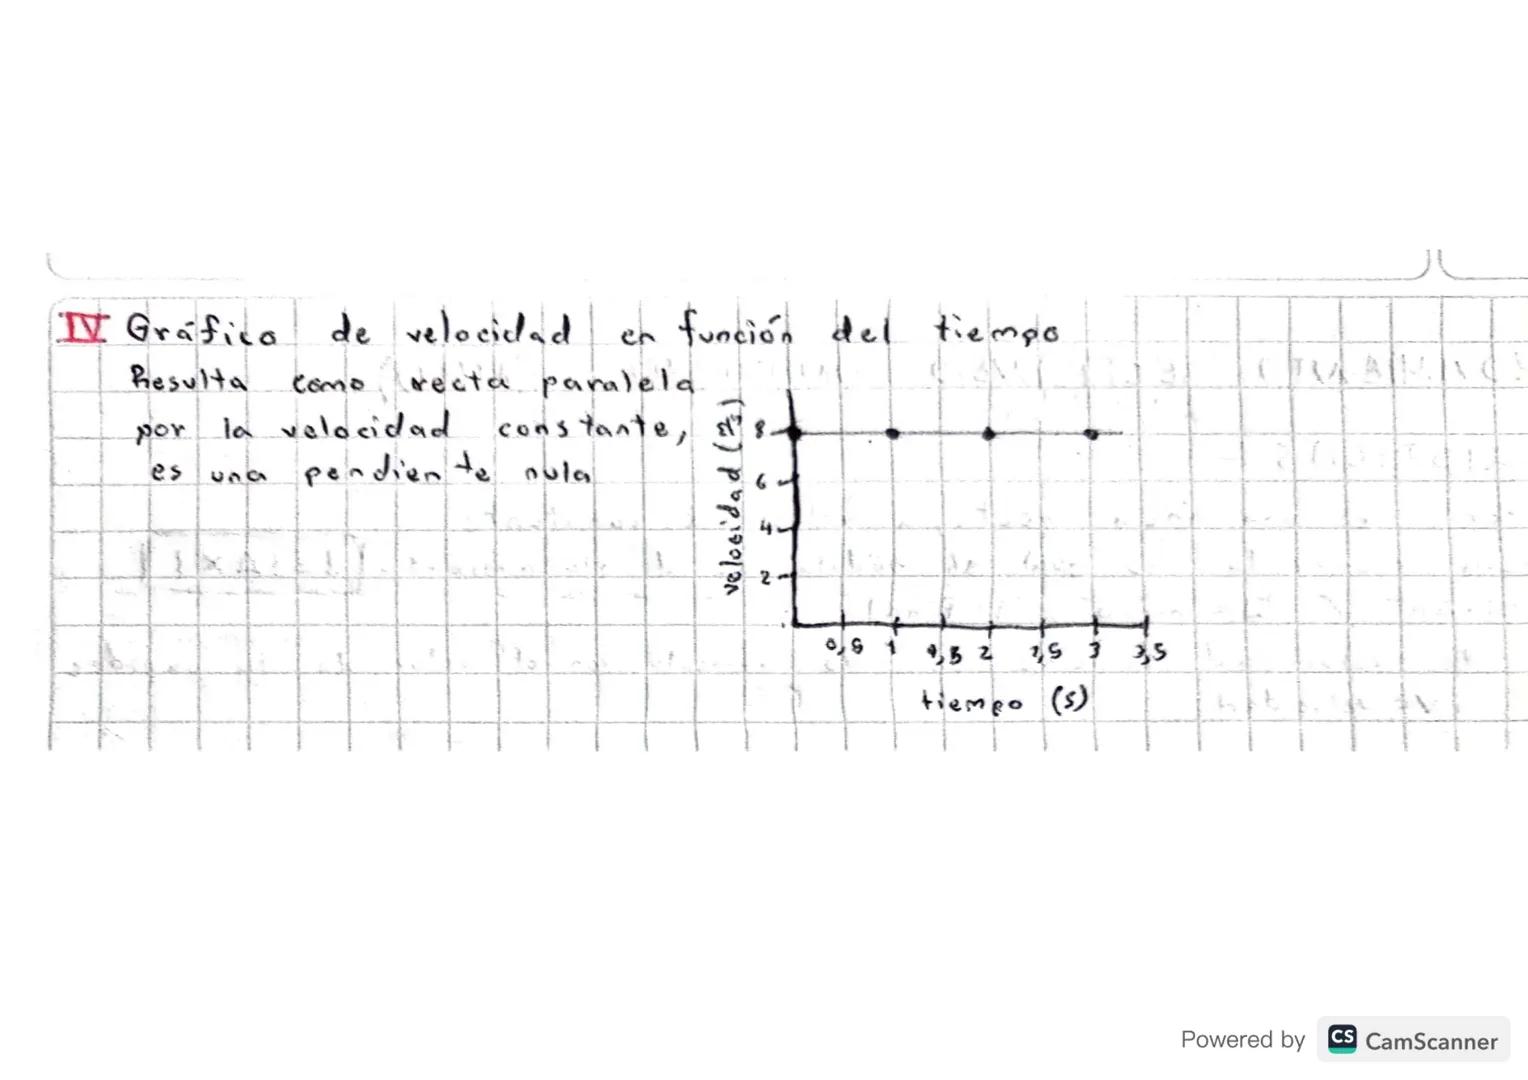 IV Gráfico de velocidad en función del tiempo
Resulta como recta paralela
por la velocidad constante,
es una pendiente nula
velocidad (m/s)
8
6
4
2
0,5 1 1,5 2 2,5 3 3,5
tiempo (s)
Powered by CS CamScanner